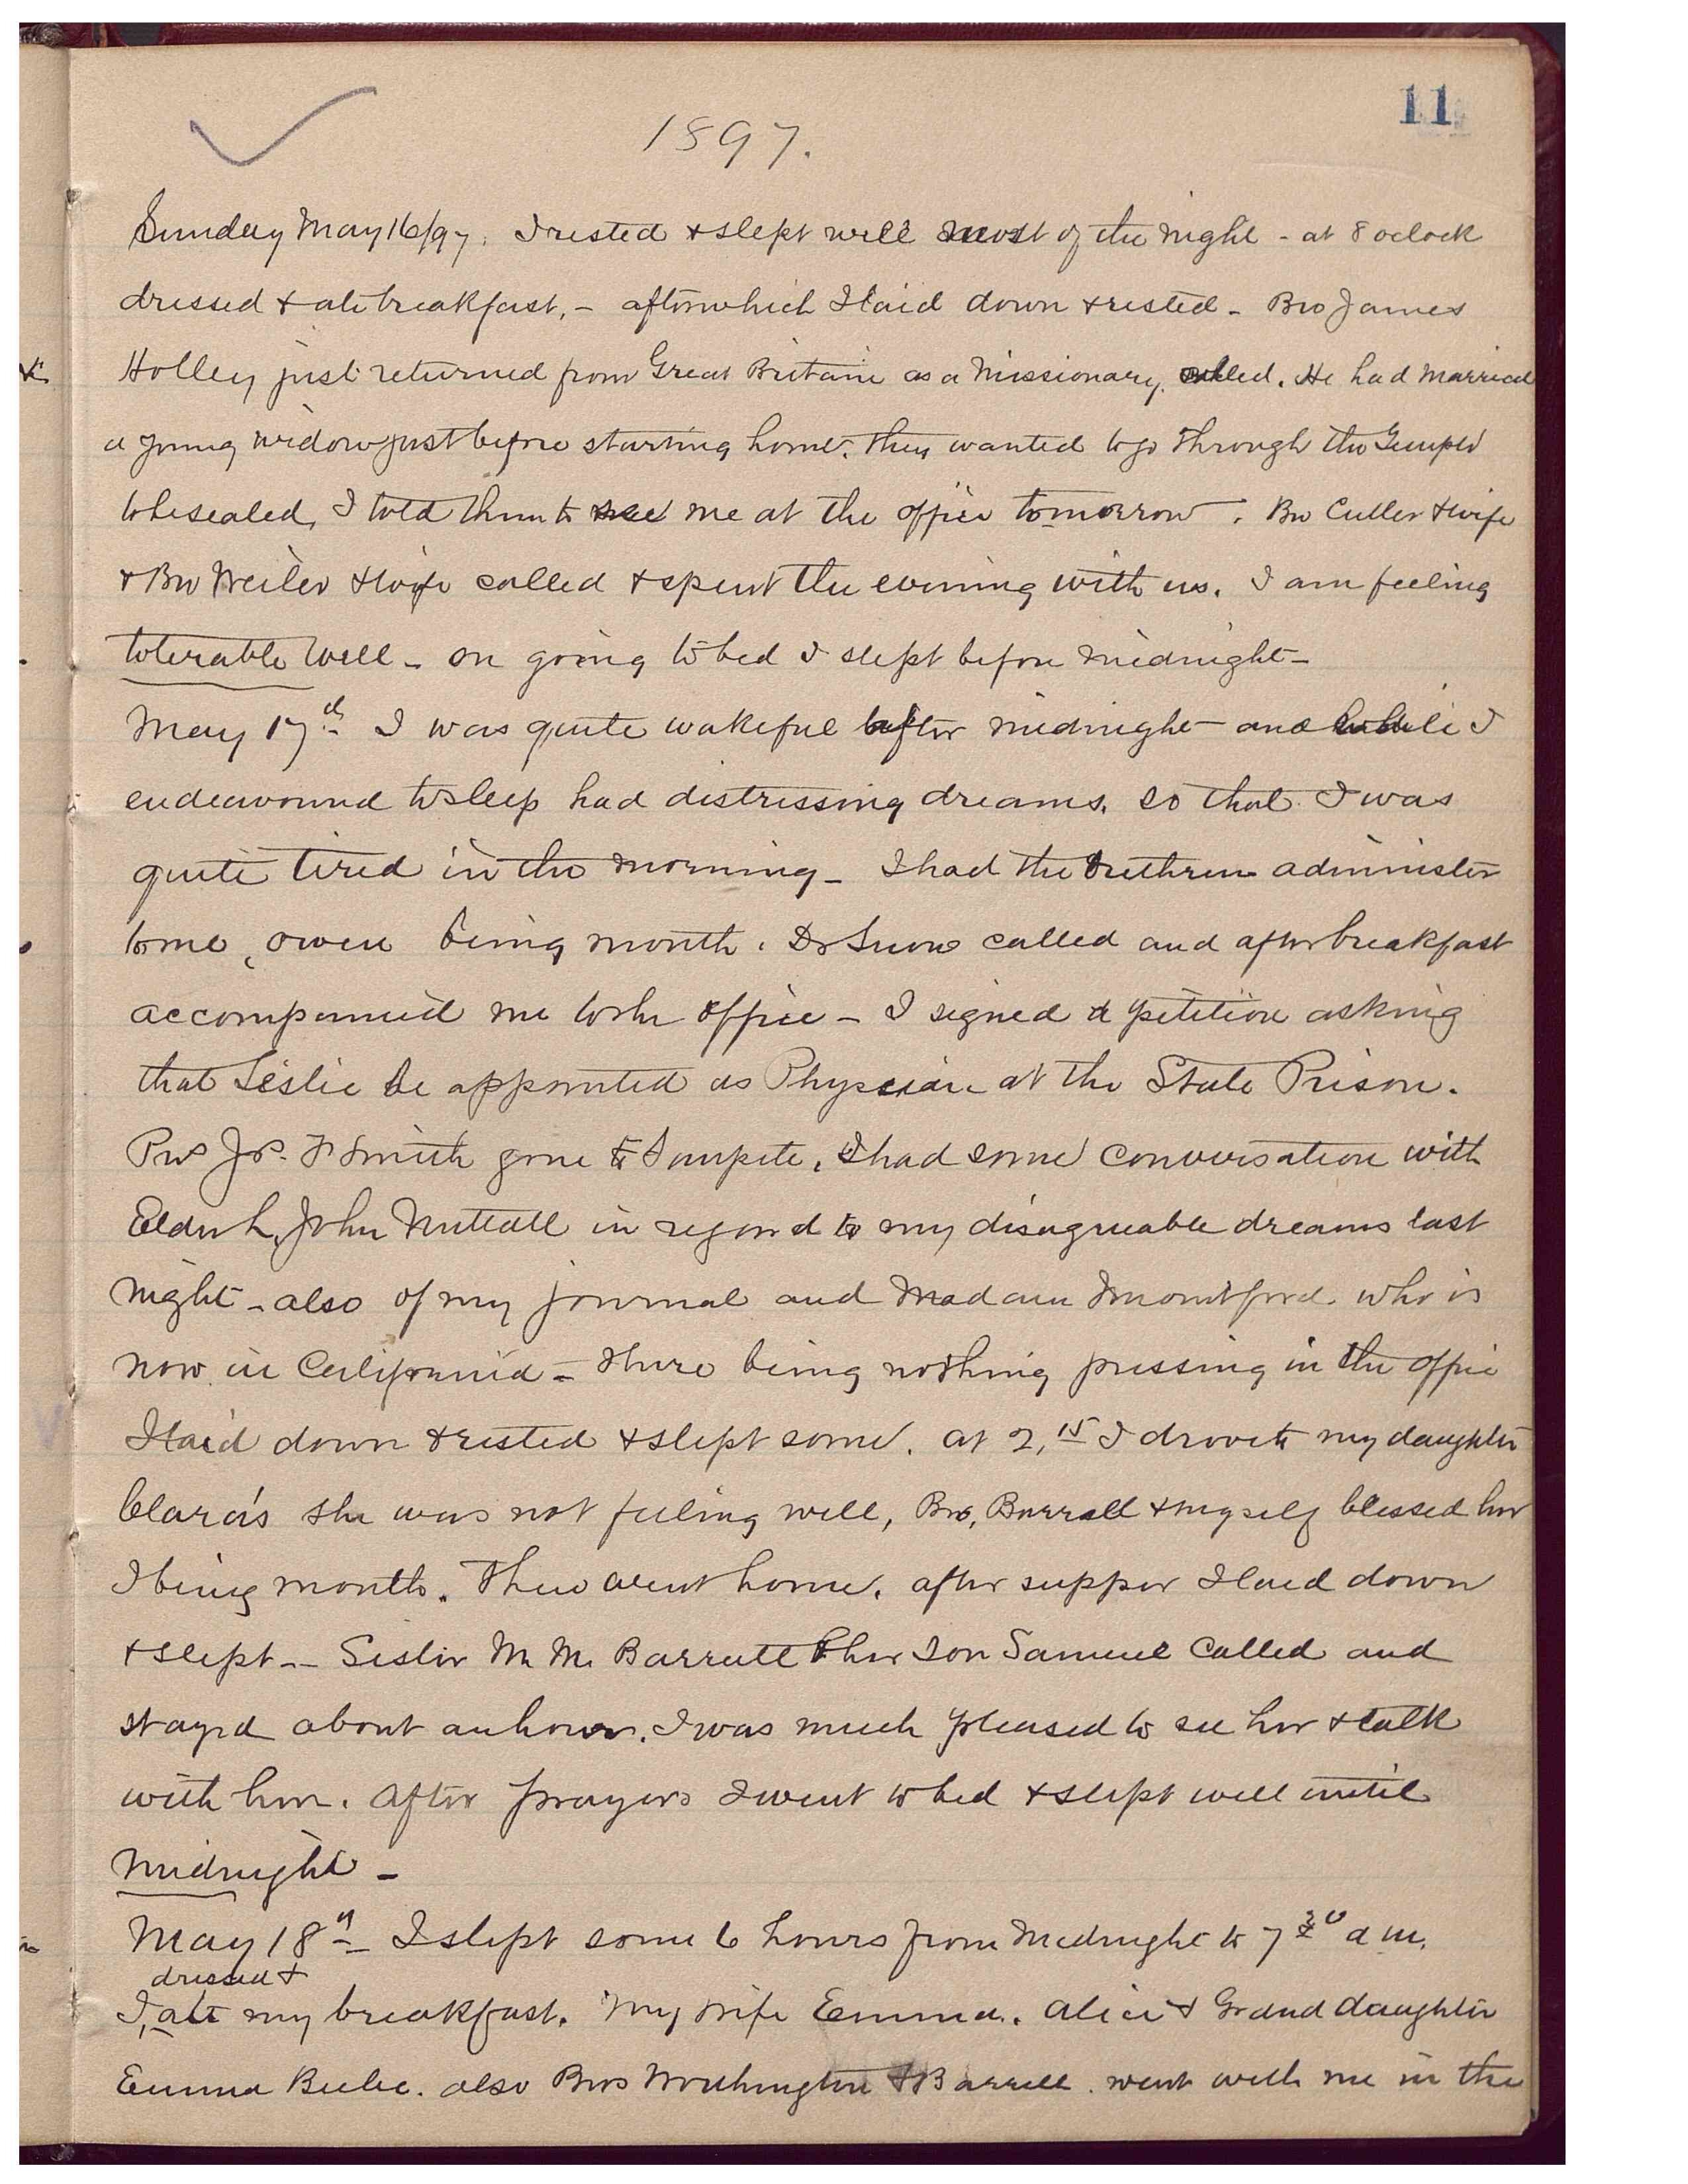 11
1897.
Sunday May 16/97. I rested & slept well most of the night - at 8 oclock
dressed & ate breakfast, - after which I laid down & rested - Bro James
Holley just returned from Great Britain as a Missionary, called. He had married
a young widow just before starting home. They wanted to go through the Temple
to be sealed, I told them to see me at the office tomorrow. Bro Cutler & wife
& Bro Weiler & wife called & spent the evening with us. I am feeling
tolerable well - on going to bed I slept before midnight -
May 17th I was quite wakeful after midnight - and while I
endeavoured to sleep had distressing dreams, so that I was
quite tired in the morning - I had the brethren administer
to me, Owen being mouth. Dr Snow called and after breakfast
accompanied me to the office - I signed a petition asking
that Leslie be appointed as Physcian at the State Prison.
Pres Jos. F Smith gone to Sanpete. I had some conversation with
Elder L. John Nuttall in regard to my disagreeable dreams last
night - also of my journal and Madam Mountford who is
now in California - There being nothing pressing in the office
I laid down & rested & slept some. at 2,15 I drove to my daughter
Clara's she was not feeling well, Bro, Burrell & myself blessed her
I being mouth. Then went home. after supper I laid down
& slept -- Sister M. M. Barratt & her son Samuel called and
stayed about an hour. I was much pleased to see her & talk
with her. After prayers I went to bed & slept well until
midnight -
May 18th I slept some 6 hours from Midnight to 7 30 a m.
dressed &
I, ate my breakfast. My wife Emma. Alice & Grand daughter
Emma Beebe. also Bros Worthington & Burrell went with me in the